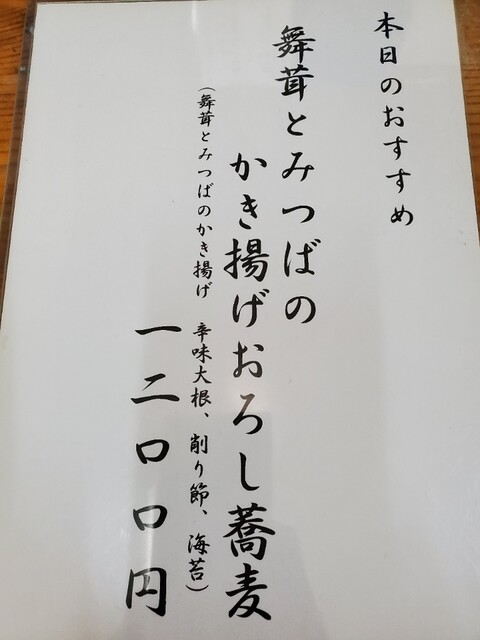 本日のおすすめ
舞茸とみつばの
かき揚げおろし蕎麦
(舞茸とみつばのかき揚げ 辛味大根、削り節、海苔)
一二〇〇円